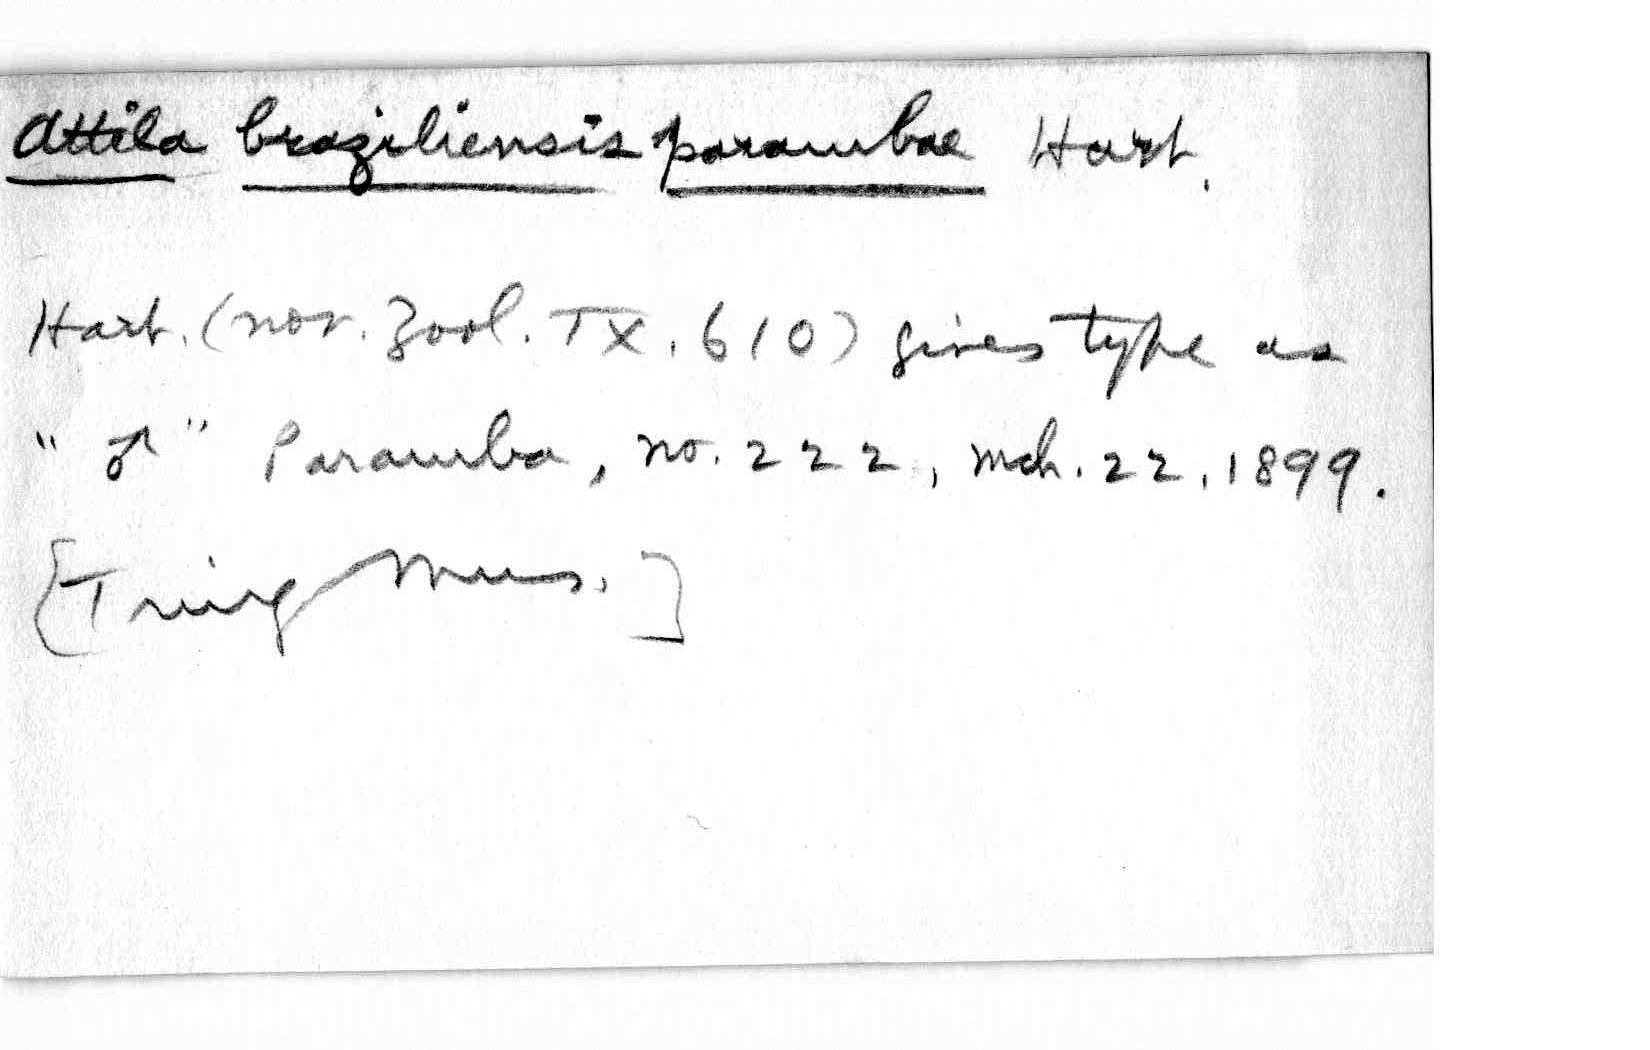 Attila braziliensis parambae Hart.
Hart. (nov. Zool. IX, 610) gives type as
"♂" Paramba, no. 222, Mch. 22, 1899.
[Tring Mus.]